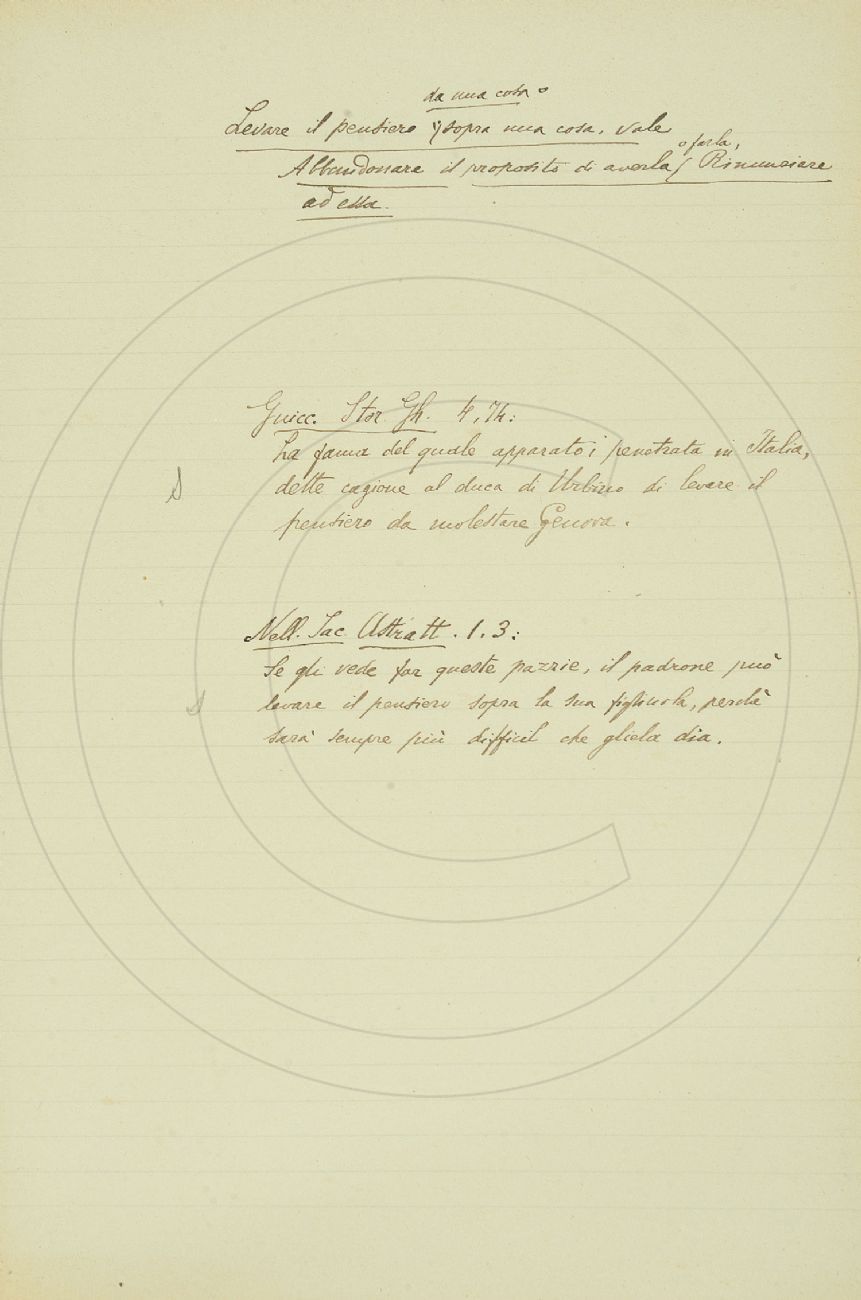 da una cosa o
Levare il pensiero sopra una cosa, vale
o farla,
Abbandonare il proposito di averla, Rinunciare
ad essa.
Guicc. Stor. Gh. 4, 74:
La fama del quale apparato, penetrata in Italia,
dette cagione al duca di Urbino di levare il
pensiero da molestare Genova.
Nell. Jac. Astratt. 1. 3:
Se gli vede far queste pazzie, il padrone può
levare il pensiero sopra la sua figliuola, perchè
sarà sempre più difficil che gliela dia.